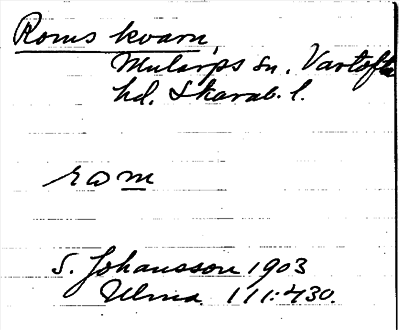 Roms kvarn,
Mularps sn. Vartofta
hd. Skarab. l.
rom
S. Johansson 1903
Ulma 111:430.